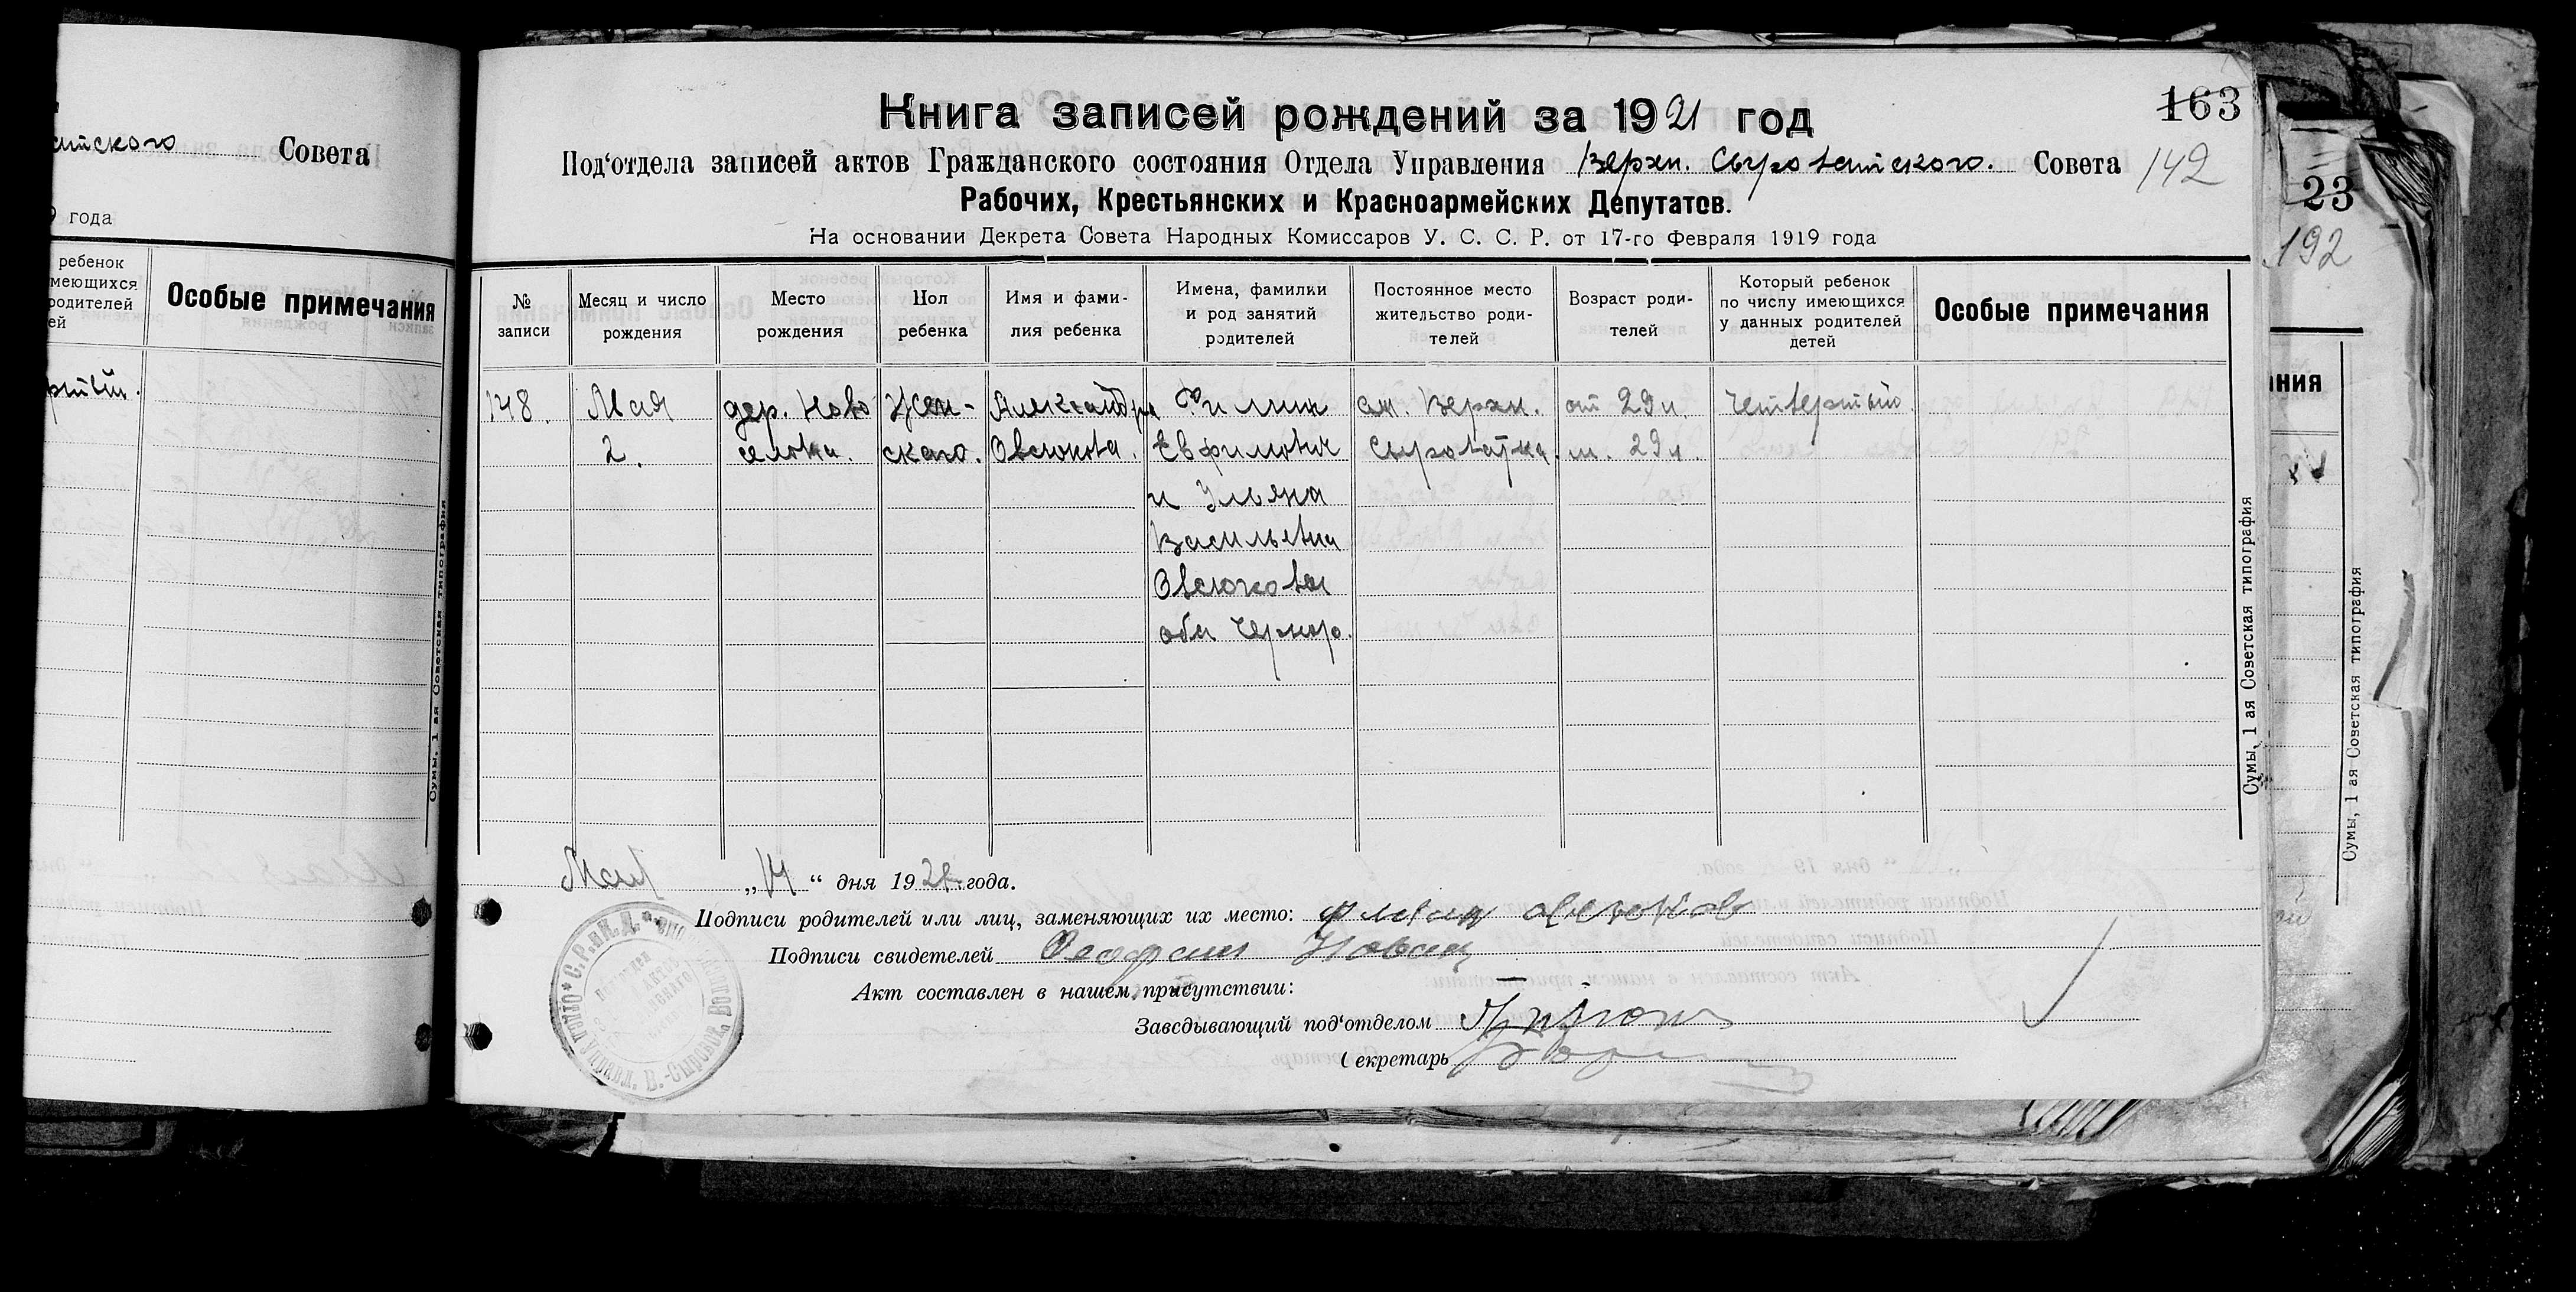 Совета
года
ребенок
Особые примечания
Сумы, 1 ая Советская типография
163
Книга записей рождений за 1921 год
Под‘отдела записей актов Гражданского состояния Отдела Управления Верхн. Сыроватского. Совета
142
Рабочих, Крестьянских и Красноармейских Депутатов.
На основании Декрета Совета Народных Комиссаров У. С. С. Р. от 17-го Февраля 1919 года
№
записи
Месяц и число
рождения
Место
рождения
Пол
ребенка
Имя и фами-
лия ребенка
Имена, фамилии
и род занятий
родителей
Постоянное место
жительство роди-
телей
Возраст роди-
телей
Который ребенок
по числу имеющихся
у данных родителей
детей
Особые примечания
148.
Мая
2.
дер. Ново
селовки.
Жен-
скаго.
Александра
Овсюкова.
Филип
Евфимович
и Ульяна
Васильевна
Овсюковы
оба
сл. Верхн.
Сыроватка.
от 29 л.
м. 29 л.
Четвертый
Сумы, 1 ая Советская типография
Мая „14“ дня 1921 года.
Подписи родителей или лиц, заменяющих их место: Филип Овсюков
Подписи свидетелей Новик
Акт составлен в нашем присутствии:
Заведывающий под‘отделом
Секретарь
23
192
Сумы, 1 ая Советская типография